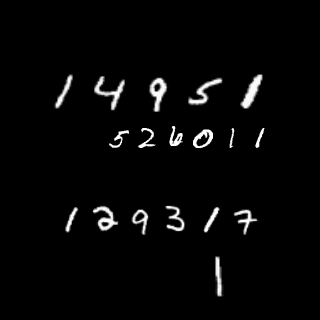 14951
526011
129317
1